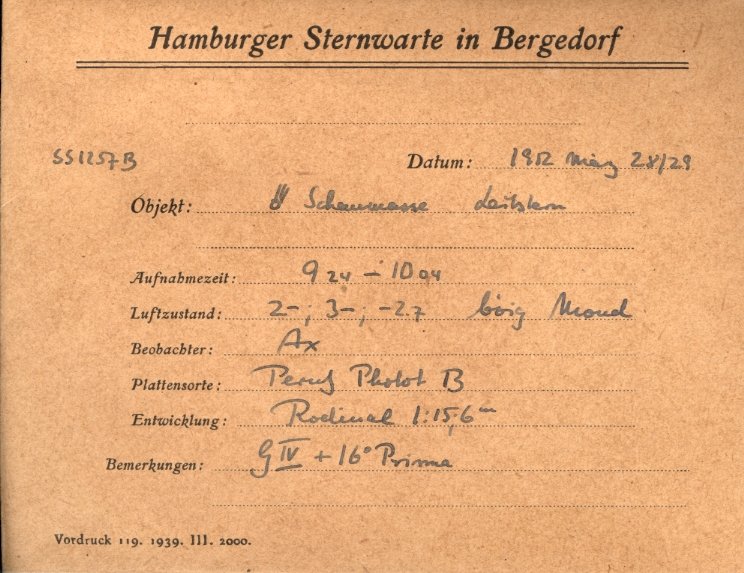 Hamburger Sternwarte in Bergedorf
SS1257B Datum: 1952 März 28/29
Objekt: Schaumasse Leitstern
Aufnahmezeit: 9 24 – 10 04
Luftzustand: 2–; 3–; –2.7 böig Mond
Beobachter: Ax
Plattensorte: Perutz Photot B
Entwicklung: Rodinal 1:15, 6 m
Bemerkungen: G IV + 16° Prisma
Vordruck 119. 1939. III. 2000.